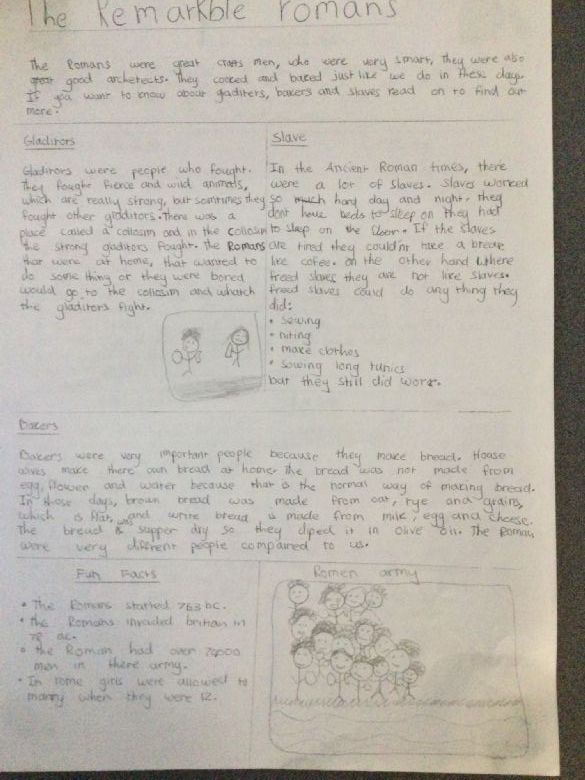 The Remarkble romans
The Romans were great crafts men, who were very smart, they were also
good archetects. They cooked and baked just like we do in these days.
If you want to know about gladiters, bakers and slaves read on to find out
more.
Gladitors
Gladitors were people who fought.
They fought fierce and wild animals,
which are really strong, but somtimes they
fought other gladitors. There was a
place called a collosim and in the collosim
the strong gaditors fought. The Romans
that were at home, that wanted to
do some thing or they were bored
would go to the collosim and whatch
the gladitors fight.
Slave
In the Ancient Roman times, there
were a lot of slaves. Slaves worked
so much hard day and night. they
dont have beds to sleep on they had
to sleep on the floor. If the slaves
are tired they couldn't take a break
like cofee. On the other hand where
freed slaves they are not like slaves.
freed slaves could do any thing they
did:
• sewing
• niting
• make clothes
• sowing long tunics
but they still did work.
Bakers
Bakers were very important people because they make bread. House
wives make there own bread at home. The bread was not made from
egg, flower and water because that is the normal way of making bread.
In those days, brown bread was made from oat, rye and grains,
which is flat, and white bread is made from milk, egg and cheese.
The bread was supper dry so they diped it in olive oil. The Romans
were very diffrent people compaired to us.
Fun Facts
• The Romans started 753 bc.
• the Romans invaded britian in
78 ac.
• the Roman had over 70000
men in there army.
• In rome girls were allowed to
marry when they were 12.
Romen army